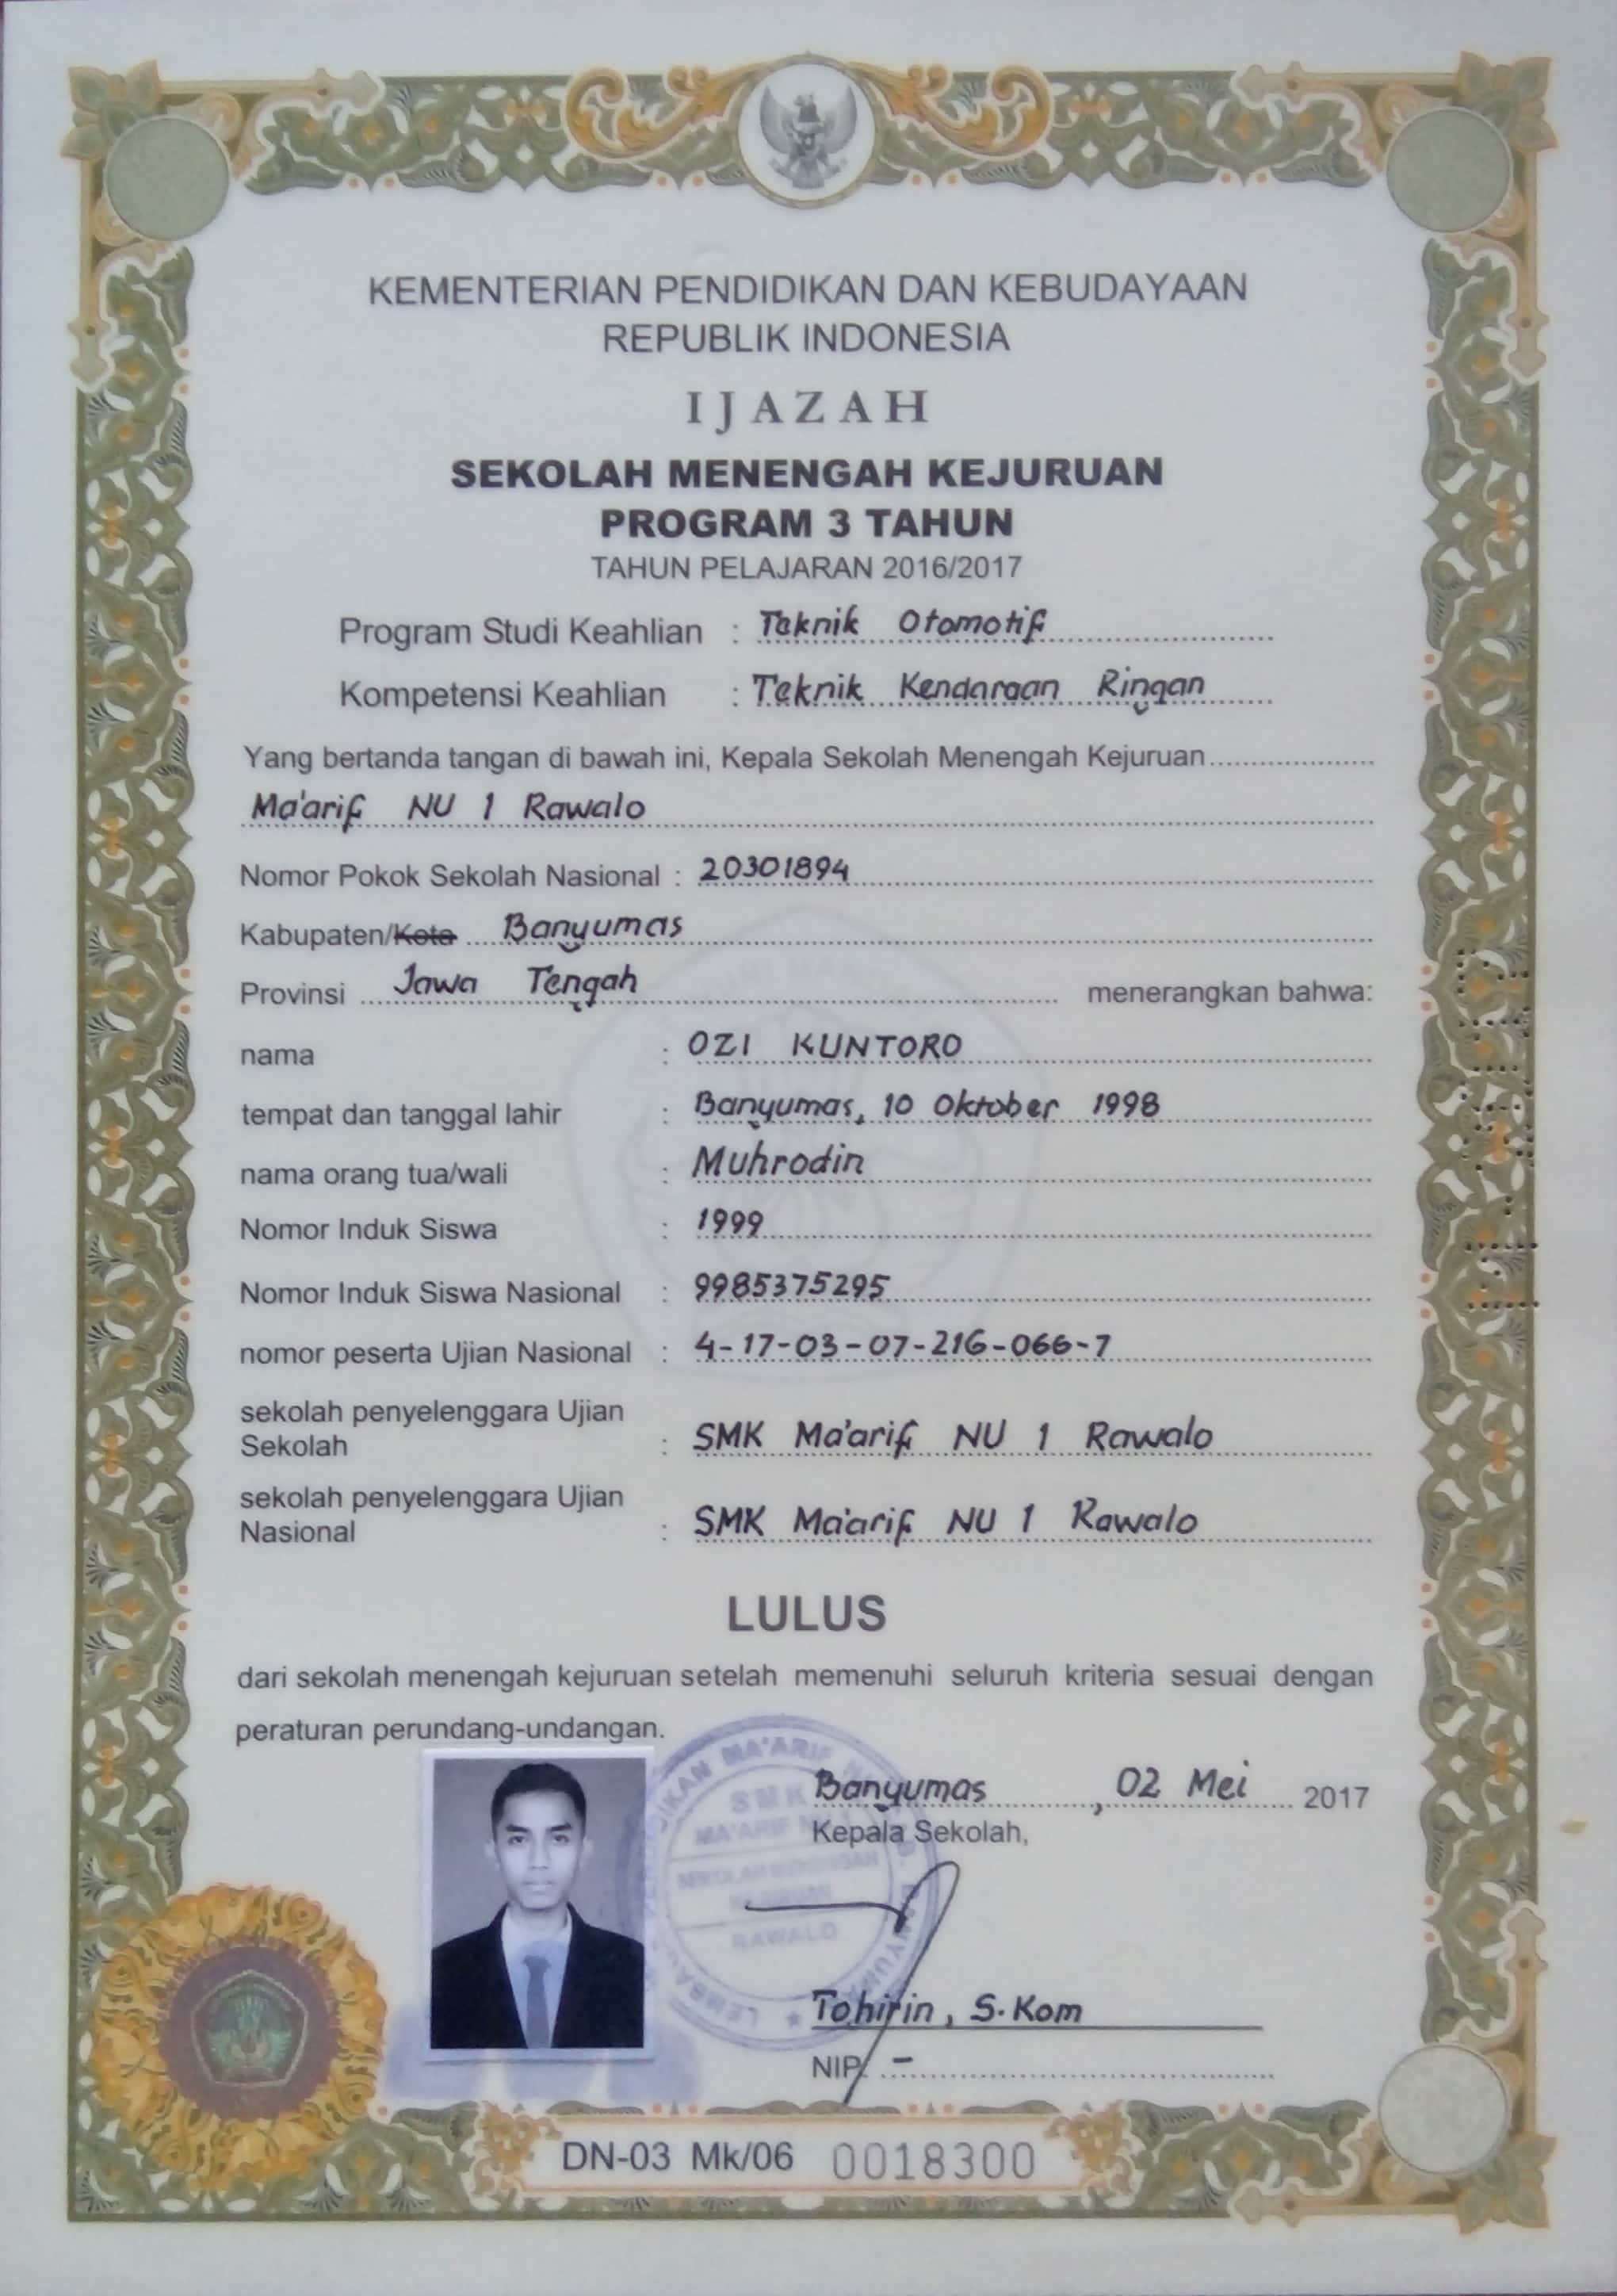 KEMENTERIAN PENDIDIKAN DAN KEBUDAYAAN
REPUBLIK INDONESIA
IJAZAH
SEKOLAH MENENGAH KEJURUAN
PROGRAM 3 TAHUN
TAHUN PELAJARAN 2016/2017
Program Studi Keahlian : Teknik Otomotif
Kompetensi Keahlian : Teknik Kendaraan Ringan
Yang bertanda tangan di bawah ini, Kepala Sekolah Menengah Kejuruan
Ma'arif NU 1 Rawalo
Nomor Pokok Sekolah Nasional : 20301894
Kabupaten/Kota Banyumas
Provinsi Jawa Tengah menerangkan bahwa:
nama : OZI KUNTORO
tempat dan tanggal lahir : Banyumas, 10 Oktober 1998
nama orang tua/wali : Muhrodin
Nomor Induk Siswa : 1999
Nomor Induk Siswa Nasional : 9985375295
nomor peserta Ujian Nasional : 4-17-03-07-216-066-7
sekolah penyelenggara Ujian
Sekolah : SMK Ma'arif NU 1 Rawalo
sekolah penyelenggara Ujian
Nasional : SMK Ma'arif NU 1 Rawalo
LULUS
dari sekolah menengah kejuruan setelah memenuhi seluruh kriteria sesuai dengan
peraturan perundang-undangan.
Banyumas, 02 Mei 2017
Kepala Sekolah,
SMK
MA'ARIF
RAWALO
Tohirin, S.Kom
NIP. -
DN-03 Mk/06 0018300